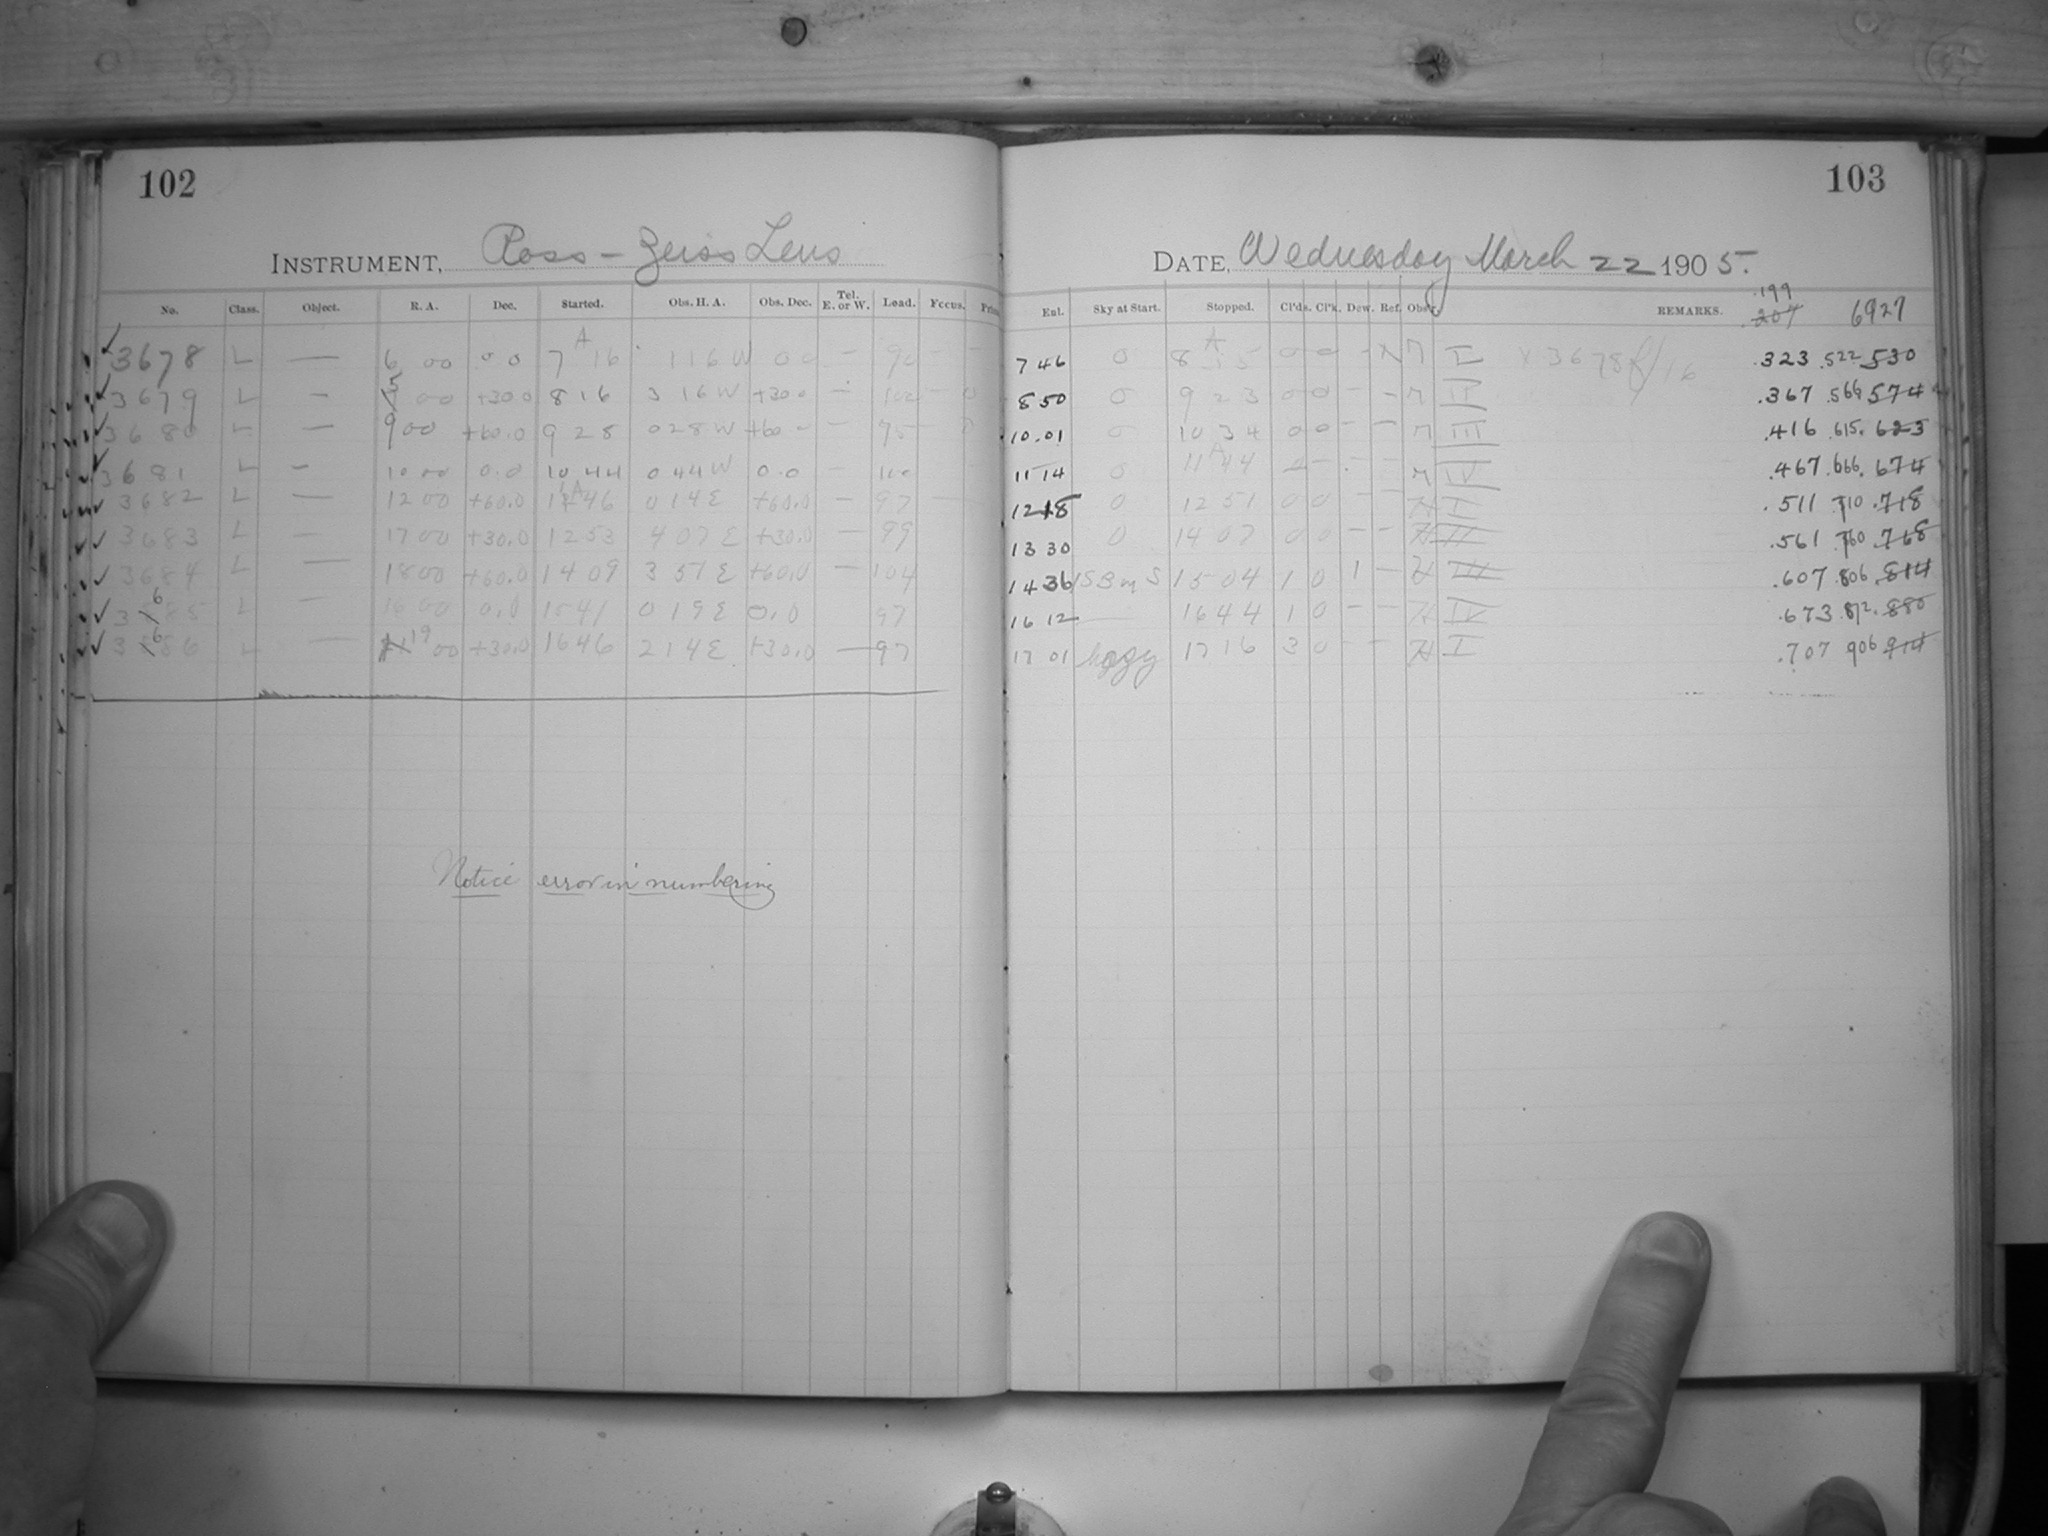 102
INSTRUMENT, Ross-Zeiss Lens
No. Class. Object. R. A. Dec. Started. Obs. H. A. Obs. Dec. Tel. E. or W. Load. Focus.
3678 L — 6 00 00 7 A 16 1 16 W 00 — 90
3679 L — 00 +30 0 8 16 3 16 W +30 0 —
3680 L — 9 00 +60.0 9 28 0 28 W +60 — 95
3681 L — 10 00 0.0 10 44 0 44 W 0.0 — 100
3682 L — 12 00 +60.0 46 0 14 E +60.0 — 97
3683 L — 17 00 +30.0 12 53 4 07 E +30.0 — 99
3684 L — 18 00 +60.0 14 09 3 51 E +60.0 — 104
3685 L — 16 00 0.0 15 41 0 19 E 0.0 97
3686 L — 19 00 +30.0 16 46 2 14 E +30.0 — 97
Notice error in numbering
103
DATE, Wednesday March 22 1905.
Ent. Sky at Start. Stopped. Cl'ds. Cl'k. Dew. Ref. Obs'r. REMARKS. .199 6927
7 46 0 8 A 15 0 0 I X 3678 f/16 .323 .522 .530
8 50 0 9 23 0 0 - - II .367 .566 .574
10.01 0 10 34 0 0 - - III .416 .615. .623
11 14 0 11 A 44 - - IV .467 .666. .674
12 18 0 12 51 0 0 - - H I .511 .710 .718
13 30 0 14 07 0 0 - - H II .561 .760 .768
14 36 15 04 1 0 1 - H III .607 .806 .814
16 12 — 16 44 1 0 - - H IV .673 .872. .880
17 01 hazy 17 16 3 0 - - H I .707 906 .914